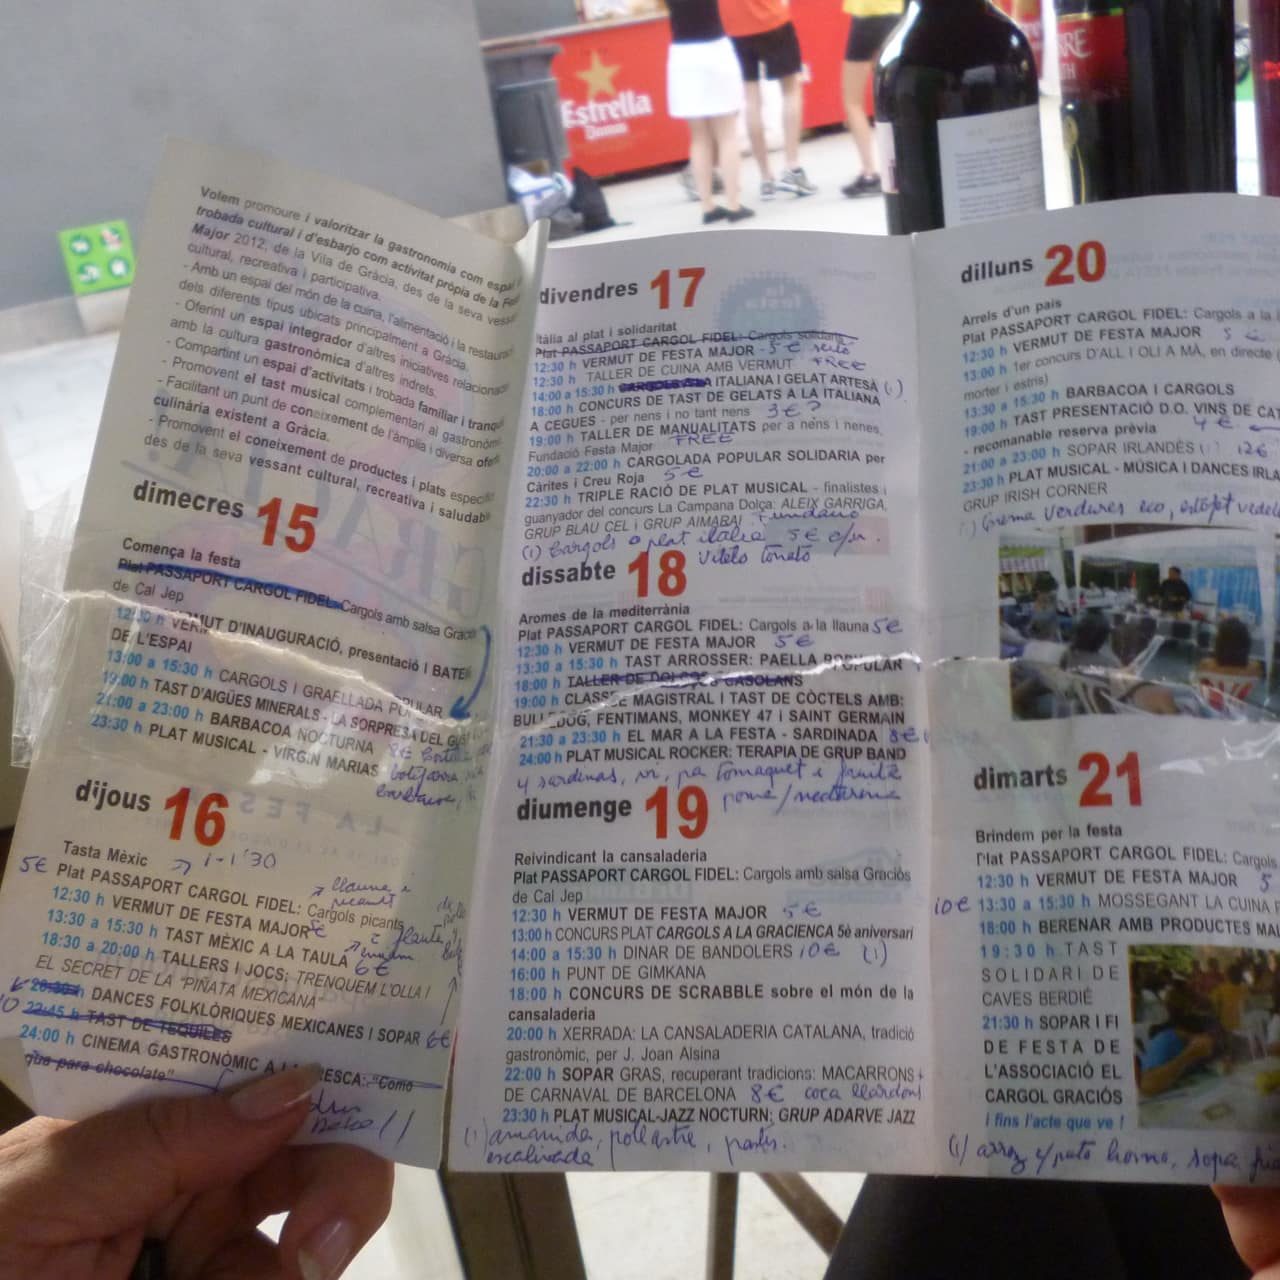 Estrella
Damm
Volem promoure i valoritzar la gastronomia com espai
trobada cultural i d'esbarjo com activitat pròpia de la
Major 2012, de la Vila de Gràcia, des de la seva
cultural, recreativa i participativa.
- Amb un espai del món de la cuina, l'alimentació i la
dels diferents tipus ubicats principalment a Gràcia.
- Oferint un espai integrador d'altres iniciatives
amb la cultura gastronòmica d'altres indrets.
- Compartint un espai d'activitats i trobada familiar i
- Promovent el tast musical complementari al
- Facilitant un punt de coneixement de l'àmplia i diversa
culinària existent a Gràcia.
- Promovent el coneixement de productes i plats
des de la seva vessant cultural, recreativa i saludable
dimecres 15
Comença la festa
Plat PASSAPORT CARGOL FIDEL: Cargols amb salsa
de Cal Jep
12:30 h VERMUT D'INAUGURACIÓ, presentació i
DE L'ESPAI
13:00 a 15:30 h CARGOLS I GRAELLADA POPULAR
19:00 h TAST D'AIGÜES MINERALS - LA SORPRESA DEL
21:00 a 23:00 h BARBACOA NOCTURNA 8€
23:30 h PLAT MUSICAL - VIRGIN MARIAS
dijous 16
Tasta Mèxic 1-1'30
5€ Plat PASSAPORT CARGOL FIDEL: Cargols picants
12:30 h VERMUT DE FESTA MAJOR
13:30 a 15:30 h TAST MÈXIC A LA TAULA 6€
18:30 a 20:00 h TALLERS I JOCS; TRENQUEM L'OLLA I
EL SECRET DE LA "PIÑATA MEXICANA"
DANCES FOLKLÒRIQUES MEXICANES I SOPAR 6€
22:45 h TAST DE TEQUILES
24:00 h CINEMA GASTRONÒMIC A LA FRESCA: "Como
que para chocolate"
divendres 17
Itàlia al plat i solidaritat
Plat PASSAPORT CARGOL FIDEL: Cargols solidaris
12:30 h VERMUT DE FESTA MAJOR - 5€
12:30 h TALLER DE CUINA AMB VERMUT FREE
14:00 a 15:30 h ITALIANA I GELAT ARTESÀ (1)
18:00 h CONCURS DE TAST DE GELATS A LA ITALIANA
A CEGUES - per nens i no tant nens 3€?
19:00 h TALLER DE MANUALITATS per a nens i nenes,
Fundació Festa Major FREE
20:00 a 22:00 h CARGOLADA POPULAR SOLIDARIA per
Càrites i Creu Roja 5€
22:30 h TRIPLE RACIÓ DE PLAT MUSICAL - finalistes i
guanyador del concurs La Campana Dolça: ALEIX GARRIGA,
GRUP BLAU CEL i GRUP AIMARAI
(1) Cargols o plat italià 5€ c/u.
Vitels tonato
dissabte 18
Aromes de la mediterrània
Plat PASSAPORT CARGOL FIDEL: Cargols a la llauna 5€
12:30 h VERMUT DE FESTA MAJOR 5€
13:30 a 15:30 h TAST ARROSSER: PAELLA POPULAR
18:00 h TALLER DE DOLÇOS CASOLANS
19:00 h CLASSE MAGISTRAL I TAST DE CÒCTELS AMB:
BULLDOG, FENTIMANS, MONKEY 47 I SAINT GERMAIN
21:30 a 23:30 h EL MAR A LA FESTA - SARDINADA 8€
24:00 h PLAT MUSICAL ROCKER: TERAPIA DE GRUP BAND
4 sardinas, vi, pa tomaquet i fruita
poma/nectarina
diumenge 19
Reivindicant la cansaladeria
Plat PASSAPORT CARGOL FIDEL: Cargols amb salsa Graciós
de Cal Jep
12:30 h VERMUT DE FESTA MAJOR 5€
13:00 h CONCURS PLAT CARGOLS A LA GRACIENCA 5è aniversari
14:00 a 15:30 h DINAR DE BANDOLERS 10€ (1)
16:00 h PUNT DE GIMKANA
18:00 h CONCURS DE SCRABBLE sobre el món de la
cansaladeria
20:00 h XERRADA: LA CANSALADERIA CATALANA, tradició
gastronòmic, per J. Joan Alsina
22:00 h SOPAR GRAS, recuperant tradicions: MACARRONS
DE CARNAVAL DE BARCELONA 8€ coca llardons
23:30 h PLAT MUSICAL-JAZZ NOCTURN; GRUP ADARVE JAZZ
(1) amanida, pollastre, postis.
escalivada
dilluns 20
Arrels d'un país
Plat PASSAPORT CARGOL FIDEL: Cargols a la
12:30 h VERMUT DE FESTA MAJOR 5€
13:00 h 1er concurs D'ALL I OLI A MÀ, en directe
morter i estris)
13:30 a 15:30 h BARBACOA I CARGOLS
19:00 h TAST PRESENTACIÓ D.O. VINS DE
- recomanable reserva prèvia 4€
21:00 a 23:00 h SOPAR IRLANDÈS (1) 12€
23:30 h PLAT MUSICAL - MÚSICA I DANCES
GRUP IRISH CORNER
(1) Crema verdures eco, estofat
dimarts 21
Brindem per la festa
Plat PASSAPORT CARGOL FIDEL: Cargols
12:30 h VERMUT DE FESTA MAJOR 5
10€ 13:30 a 15:30 h MOSSEGANT LA CUINA
18:00 h BERENAR AMB PRODUCTES
19:30 h TAST
SOLIDARI DE
CAVES BERDIÉ
21:30 h SOPAR I FI
DE FESTA DE
L'ASSOCIACIÓ EL
CARGOL GRACIÓS
i fins l'acte que ve !
(1) arroz horno, sopa